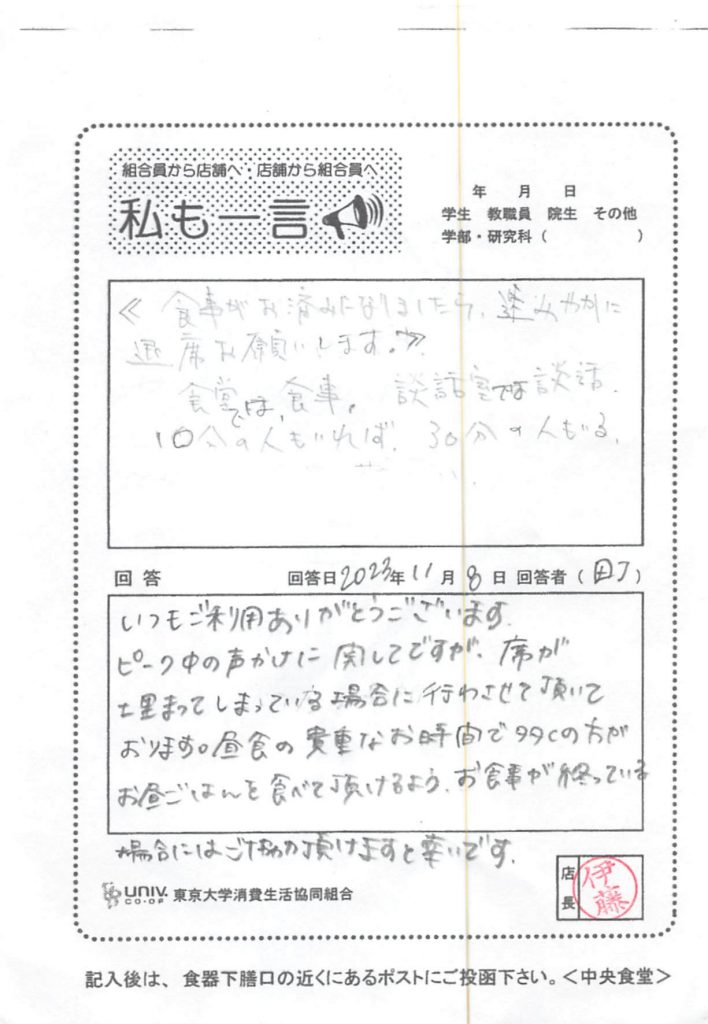 組合員から店舗へ・店舗から組合員へ
私も一言
年 月 日
学生 教職員 院生 その他
学部・研究科 ( )
≪食事がお済みになりましたら、速みやかに
退席お願いします。≫
食堂では、食事。 談話室では談話。
10分の人もいれば、30分の人もいる。
回答 回答日2023年11月8日 回答者 ( 町 )
いつもご利用ありがとうございます。
ピーク中の声かけに関してですが、席が
埋まってしまっている場合に行わさせて頂いて
おります。昼食の貴重なお時間で多くの方が
お昼ごはんを食べて頂けるよう、お食事が終っている
場合にはご協力頂けますと幸いです。
UNIV. CO-OP 東京大学消費生活協同組合
店長 伊藤
記入後は、食器下膳口の近くにあるポストにご投函下さい。＜中央食堂＞